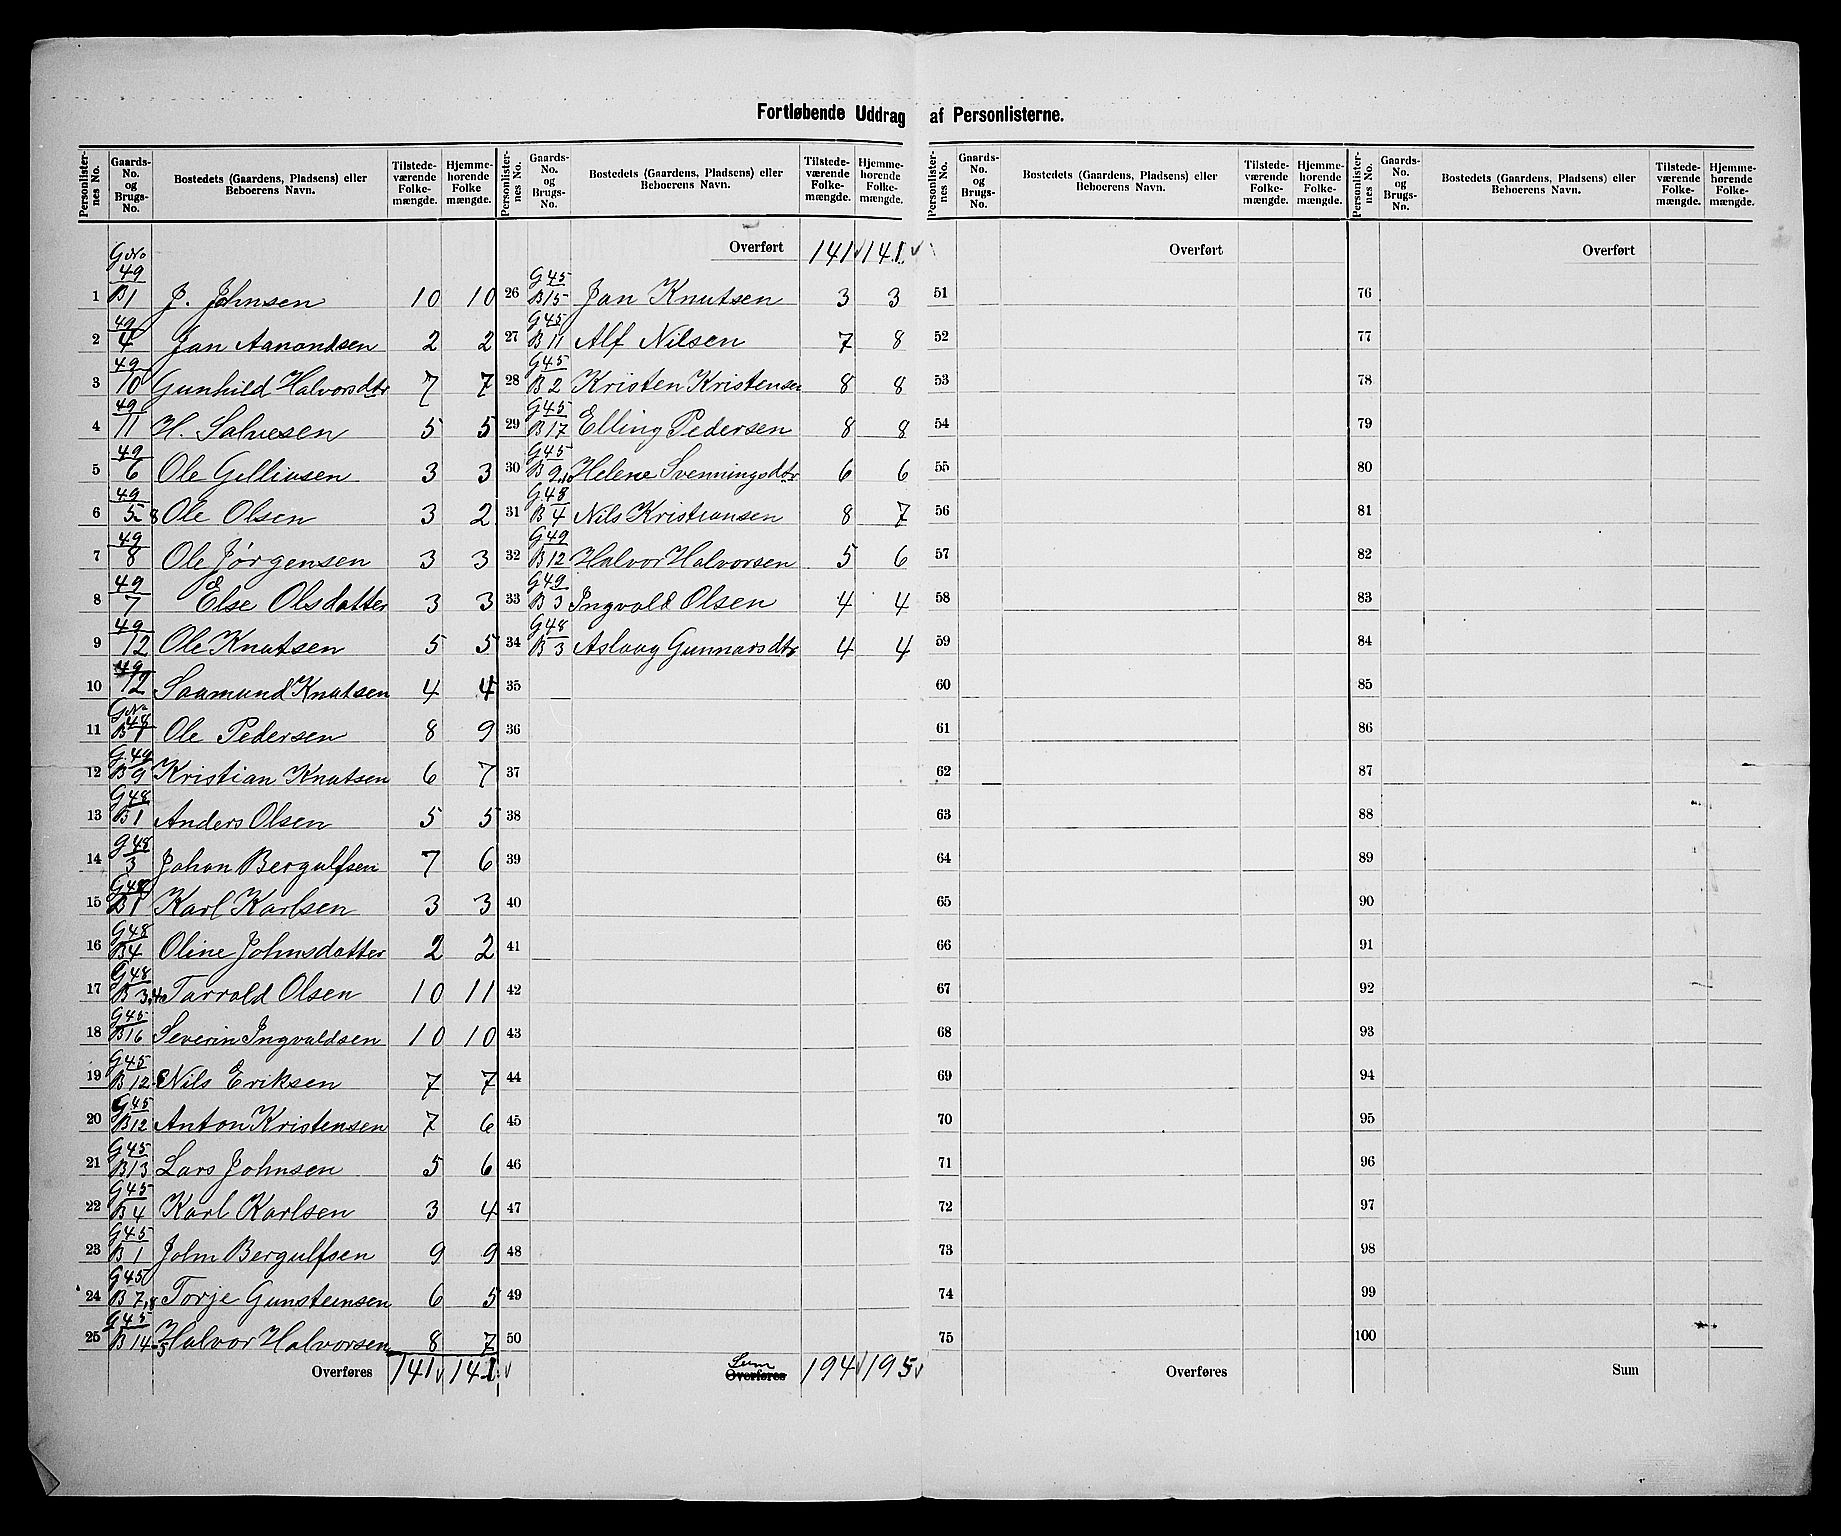 Fortløbende Uddrag af Personlisterne.
Personlisternes No. | Gaards-No. og Brugs-No. | Bostedets (Gaardens, Pladsens) eller Beboerens Navn. | Tilstedeværende Folkemængde. | Hjemmehørende Folkemængde.
Personlisternes No. | Gaards-No. og Brugs-No. | Bostedets (Gaardens, Pladsens) eller Beboerens Navn. | Tilstedeværende Folkemængde. | Hjemmehørende Folkemængde.
Personlisternes No. | Gaards-No. og Brugs-No. | Bostedets (Gaardens, Pladsens) eller Beboerens Navn. | Tilstedeværende Folkemængde. | Hjemmehørende Folkemængde.
Personlisternes No. | Gaards-No. og Brugs-No. | Bostedets (Gaardens, Pladsens) eller Beboerens Navn. | Tilstedeværende Folkemængde. | Hjemmehørende Folkemængde.
1 GNo 49 B 1 J. Johnsen 10 10
2 49 4 Jan Aanondsen 2 2
3 49 10 Gunhild Halvorsdtr 7 7
4 49 11 H. Salvesen 5 5
5 49 6 Ole Gelliusen 3 3
6 49 5 8 Ole Olsen 3 2
7 49 8 Ole Jørgensen 3 3
8 49 7 Else Olsdatter 3 3
9 49 12 Ole Knutsen 5 5
10 49 12 Saamund Knutsen 4 4
11 GNo 48 B 1 Ole Pedersen 8 9
12 G 49 B 9 Kristian Knutsen 6 7
13 G 48 B 1 Anders Olsen 5 5
14 G 48 3 Johan Bergulfsen 7 6
15 G 48 B 1 Karl Karlsen 3 3
16 G 48 B 4 Oline Johnsdatter 2 2
17 G 48 B 3,4 Tarrald Olsen 10 11
18 G 45 B 16 Severin Ingvaldsen 10 10
19 G 45 B 12 Nils Eriksen 7 7
20 G 45 B 12 Anton Kristensen 7 6
21 G 45 B 13 Lars Johnsen 5 6
22 G 45 B 4 Karl Karlsen 3 4
23 G 45 B 1 John Bergulfsen 9 9
24 G 45 B 7,8 Torje Gunsteinsen 6 5
25 G 45 B 14 Halvor Halvorsen 8 7
Overføres 141 141
Overført 141 141
26 G 45 B 15 Jan Knutsen 3 3
27 G 45 B 11 Alf Nilsen 7 8
28 G 45 B 2 Kristen Kristensen 8 8
29 G 45 B 17 Elling Pedersen 8 8
30 G 45 B 9,10 Helene Svenningsdtr 6 6
31 G 48 B 4 Nils Kristiansen 8 7
32 G 49 B 12 Halvor Halvorsen 5 6
33 G 49 B 3 Ingvald Olsen 4 4
34 G 48 B 3 Aslaug Gunnarsdtr 4 4
35
36
37
38
39
40
41
42
43
44
45
46
47
48
49
50
Sum Overføres 194 195
Overført
51
52
53
54
55
56
57
58
59
60
61
62
63
64
65
66
67
68
69
70
71
72
73
74
75
Overføres
Overført
76
77
78
79
80
81
82
83
84
85
86
87
88
89
90
91
92
93
94
95
96
97
98
99
100
Sum